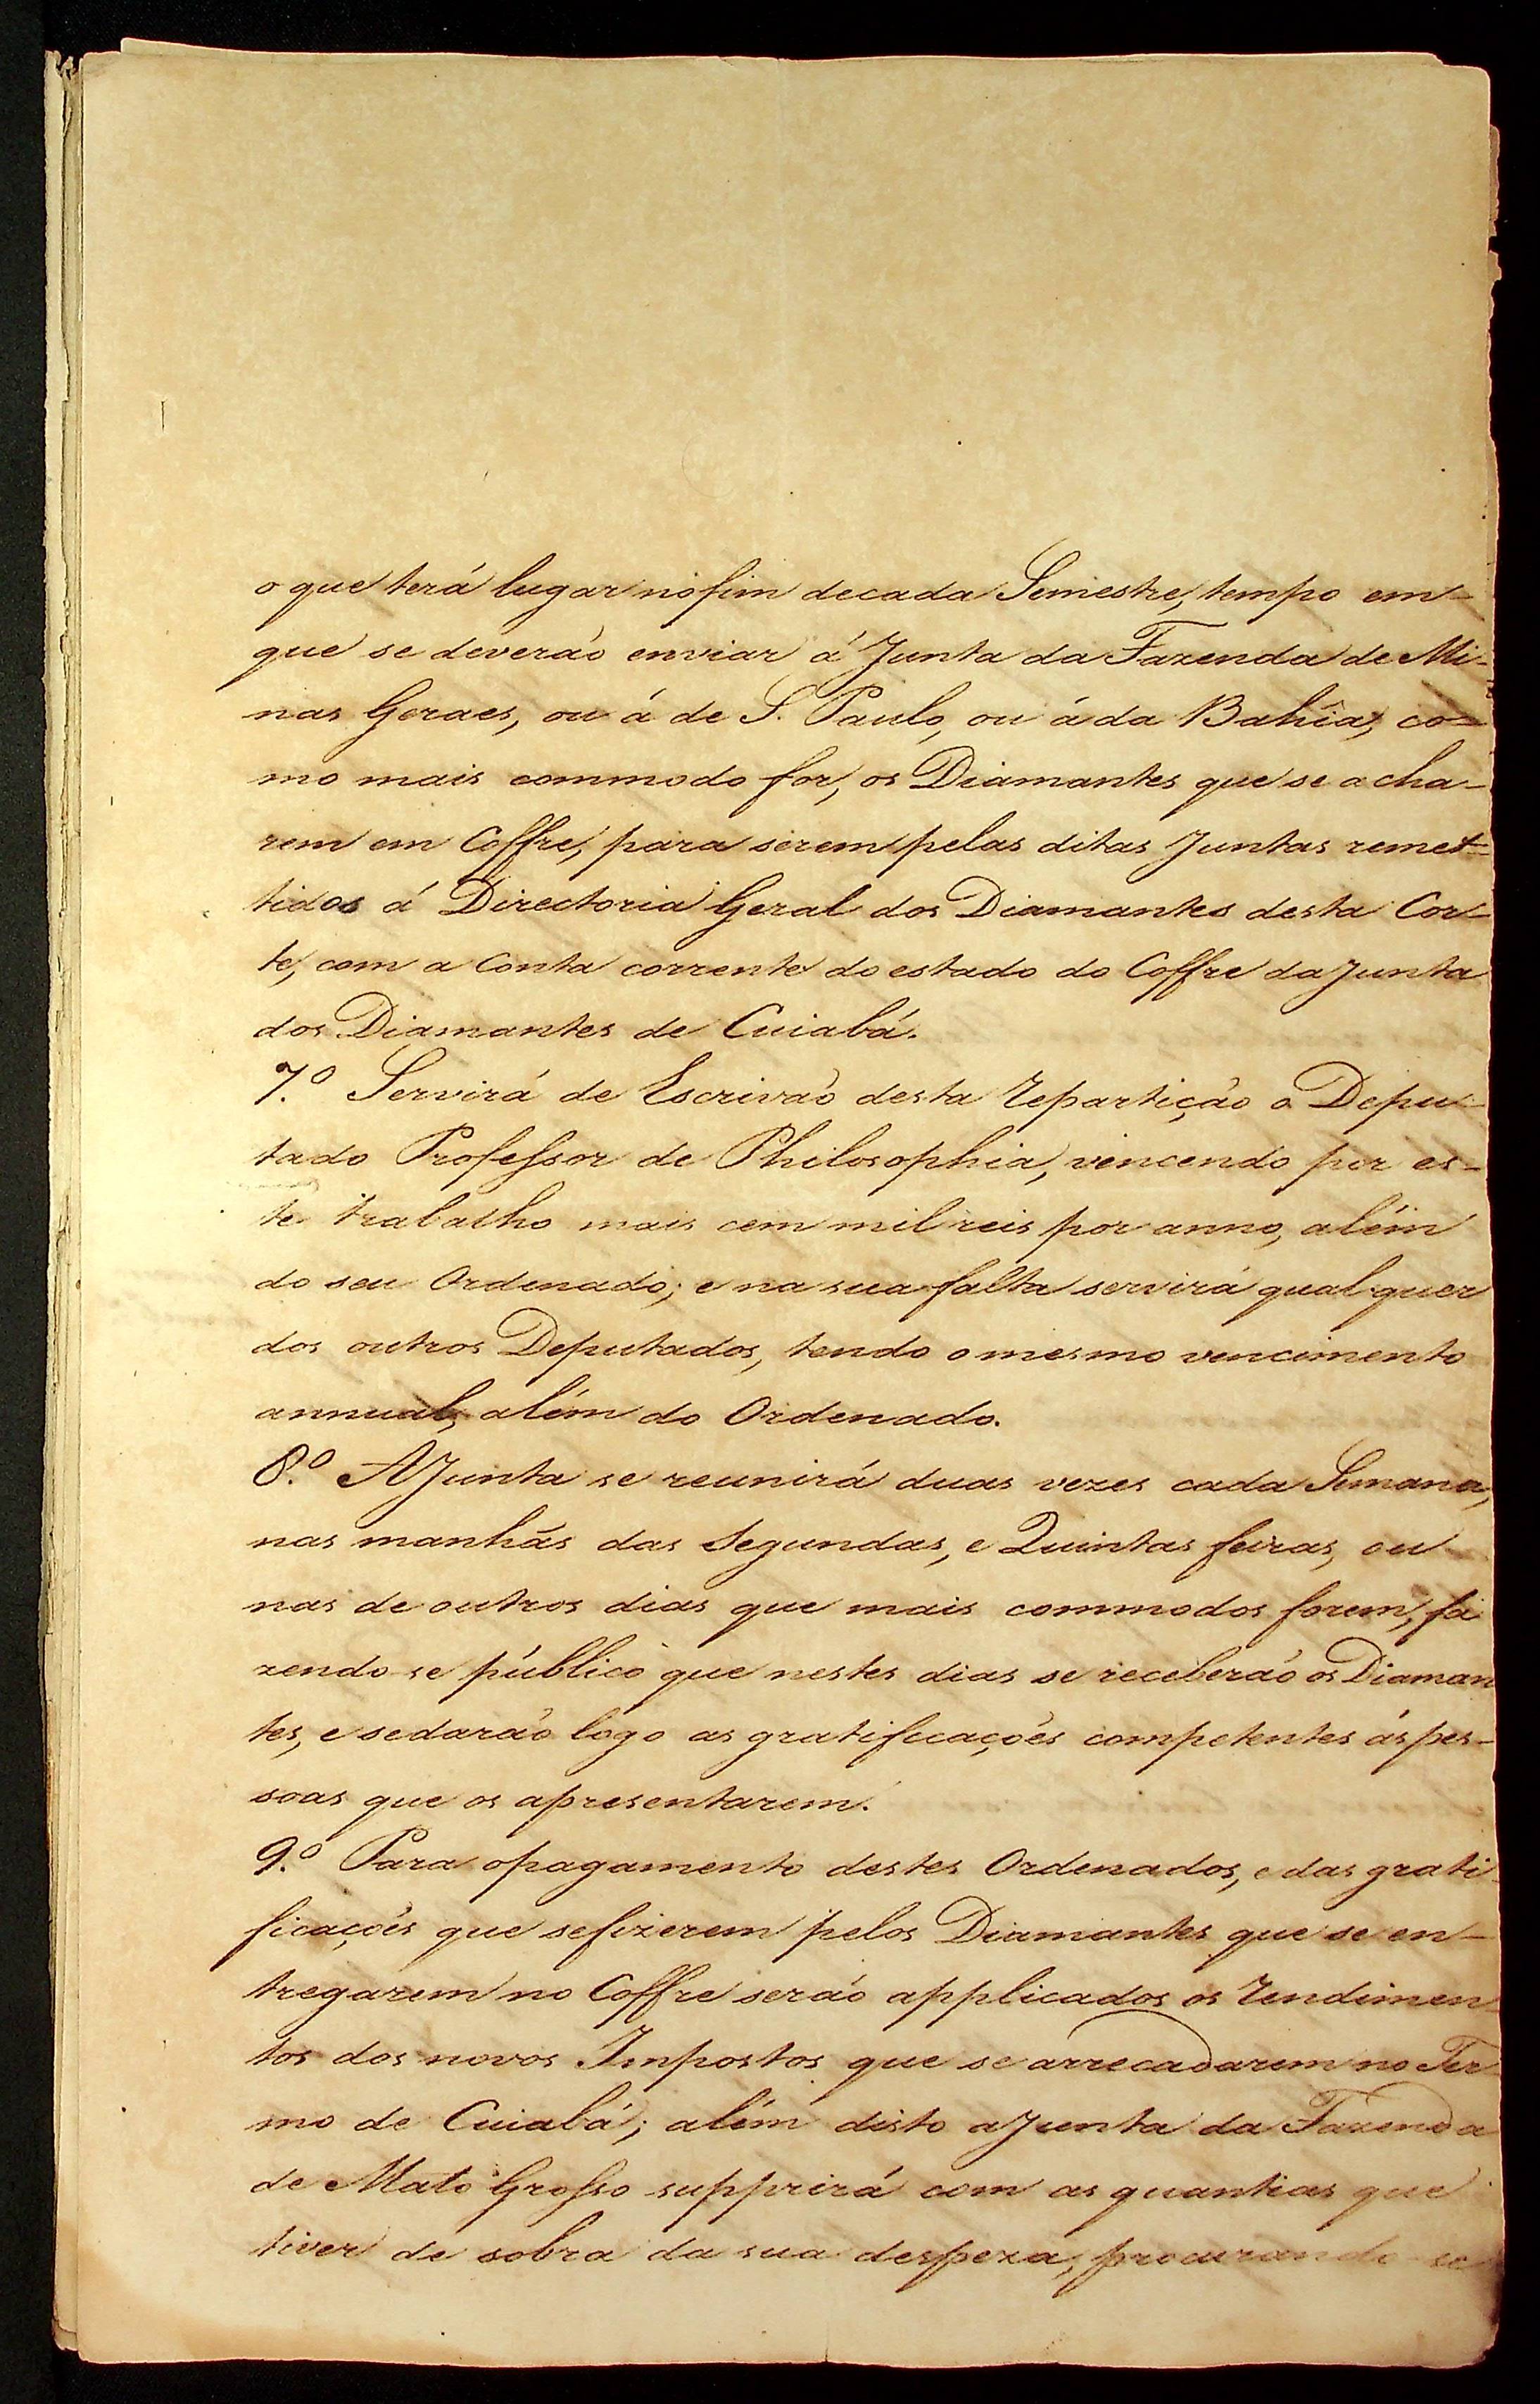 o que terá lugar no fim decada Semestre, tempo em-
que se deverão enviar á Junta da Fazenda de Mi-
nas Geraes, ou á de S. Paulo, ou á da Bahîa, co-
mo mais commodo for, os Diamantes que se acha-
rem em Coffre, para serem pelas ditas Juntas remet-
tidos á Directoria Geral dos Diamantes desta Cor-
te, com a Conta corrente do estado do Coffre da Junta
dos Diamantes de Cuiabá.
7.º Servirá de Escrivão desta Repartição o Depu-
tado Professor de Philosophia, vencendo por es-
te trabalho mais cem mil reis por anno, além
do seu Ordenado; e na sua falta servirá qualquer
dos outros Deputados, tendo o mesmo vencimento
annual, além do Ordenado.
8.º A Junta se reunirá duas vezes cada Semana,
nas manhãs das Segundas, e Quintas feiras, ou
nas de outros dias que mais commodos forem, fa
zendo-se público que nestes dias se receberão os Diaman
tes, e sedarão logo as gratificações competentes ás pes-
soas que os apresentarem.
9.º Para opagamento destes Ordenados, e das grati
ficações que sefizerem pelos Diamantes que se en-
tregarem no Coffre serão applicados os Rendimen
tos dos novos Impostos que se arrecadarem no Ter
mo de Cuiabá; além disto a Junta da Fazenda
de Mato Grosso supprirá com as quantias que
tiver de sobra da sua despeza, procurando-se